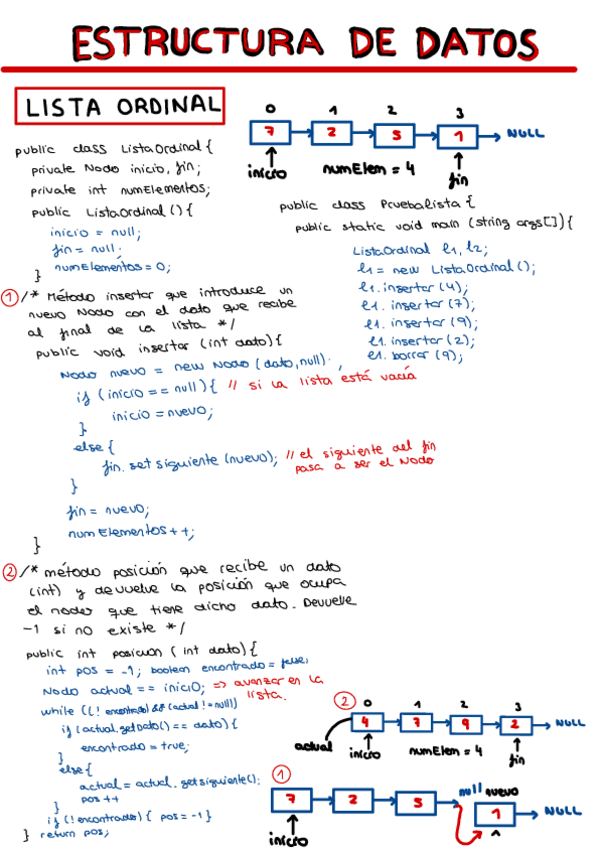 ESTRUCTURA DE DATOS
LISTA ORDINAL
0 1 2 3
7 2 5 1 NULL
inicio numElem = 4 fin
public class ListaOrdinal {
private Nodo inicio, fin;
private int numElementos;
public ListaOrdinal () {
inicio = null;
fin = null;
numElementos = 0;
}
① /* Método insertar que introduce un
nuevo Nodo con el dato que recibe
al final de la lista */
public void insertar (int dato) {
Nodo nuevo = new Nodo (dato, null);
if (inicio == null) { // si la lista está vacía
inicio = nuevo;
}
else {
fin.set siguiente (nuevo); // el siguiente del fin
pasa a ser el Nodo
}
fin = nuevo;
num Elementos ++;
}
public class PruebaLista {
public static void main (string args[]) {
ListaOrdinal l1, l2;
l1 = new ListaOrdinal ();
l1.insertar (4);
l1.insertar (7);
l1.insertar (9);
l1.insertar (2);
l1.borrar (9);
② /* método posición que recibe un dato
(int) y devuelve la posición que ocupa
el nodo que tiene dicho dato. Devuelve
-1 si no existe */
public int posicion (int dato) {
int pos = -1; boolean encontrado = false;
Nodo actual == inicio; => avanzar en la
lista.
while ((! encontrado) && (actual != null))
if (actual.getDato() == dato) {
encontrado = true;
}
else {
actual = actual.getsiguiente();
pos ++
}
if (! encontrado) { pos = -1 }
} return pos;
② 0 1 2 3
4 7 9 2 NULL
actual inicio numElem = 4 fin
①
null nuevo
7 2 5 1 NULL
inicio